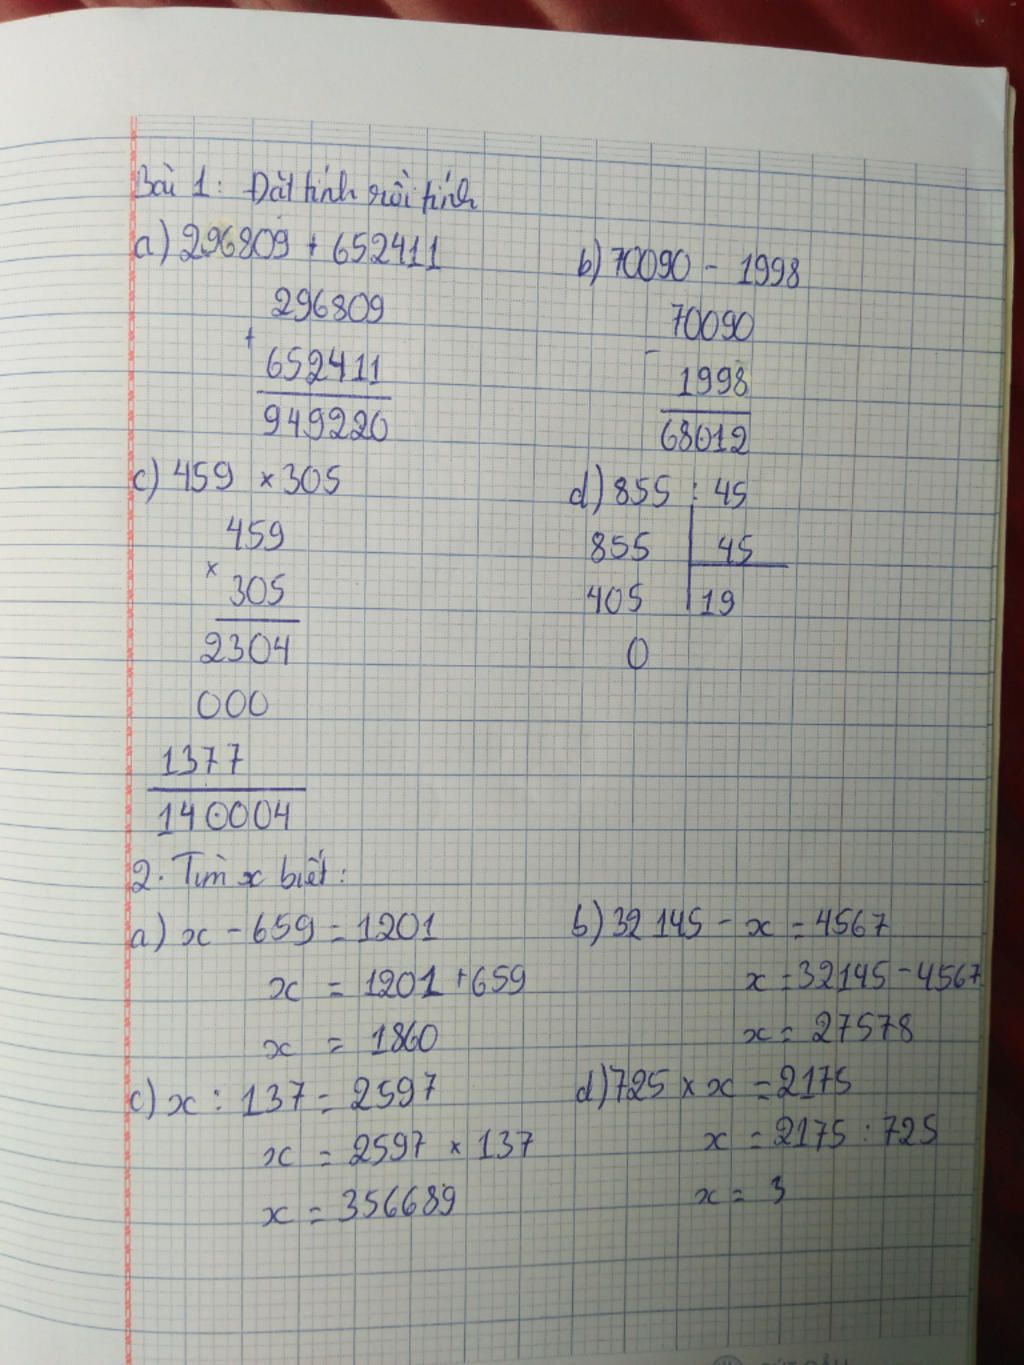 Bài 1: Đặt tính rồi tính
a) 296809 + 652411
b) 70090 - 1998
296809
+
652411
949220
70090
-
1998
68012
c) 459 × 305
d) 855 : 45
459
×
305
2304
000
1377
140004
855 45
405 19
0
2. Tìm x biết:
a) x - 659 = 1201
x = 1201 + 659
x = 1860
b) 32145 - x = 4567
x = 32145 - 4567
x = 27578
c) x : 137 = 2597
x = 2597 × 137
x = 356689
d) 725 × x = 2175
x = 2175 : 725
x = 3